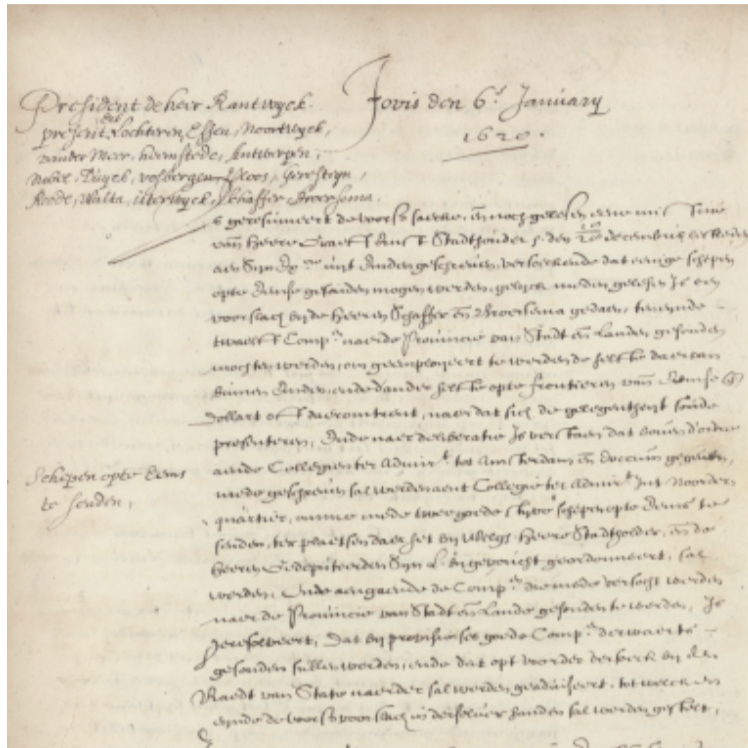 Jovis den 6.' January
1620.
President de heer Rantwyck.
present Lochteren, Essen, Noortwyck,
vander Meer, heemstede, Antwerpen,
Nobel, Duyck, vosbergen, Ploos,
Roode, Walta, Uterwyck, Schaffer
Is geresumeert de voors saecke, en noch gelesen eene missive
van Heere Graeff Stadthouder den decembris
aen Syn uut Emden geschreven, versoeckende dat eenige schepen
opte Eemse gesonden mogen werden, gelyck mede gelesen Is een
voorslach byde Heeren Schaffer en Broersema gedaen, tenemde
twaelff Comp. naerde Provincie van Stadt en Landen gesonden
mochten werden, om geemployeert te werden de helfte daer van
binnen Emden, ende dander helfte opte frontieren van Eemse
Dollart oft daeromtrent, naer dat sich de gelegentheyt soude
presenteren, Ende naer deliberatie Is verstaen dat boven d'ordre
aende Collegien ter Admir. tot Amsterdam en gegeven,
mede geschreven sal werden aent Collegie ter Admir. Int Noorder
Schepen opte Eems
te senden,
quartier, omme mede twee goede schepen opte Eemse te
senden, ter plaetsen daer het by Heere Stadtholder, en de
Heeren Gedeputeerden Syn geordonneert, sal
werden, Ende aengaende de Comp. die mede versocht werden
naer de Provincie van Stadt en Lande gesonden te werden, Is
geresolveert, Dat by provisie ses goede Comp. derwaerts
gesonden sullen worden, ende dat opt voorder versoeck by den
Raedt van State naerder sal werden geadviseert, tot welcken
eynde de voors voorslach in derselver handen sal werden gestelt,